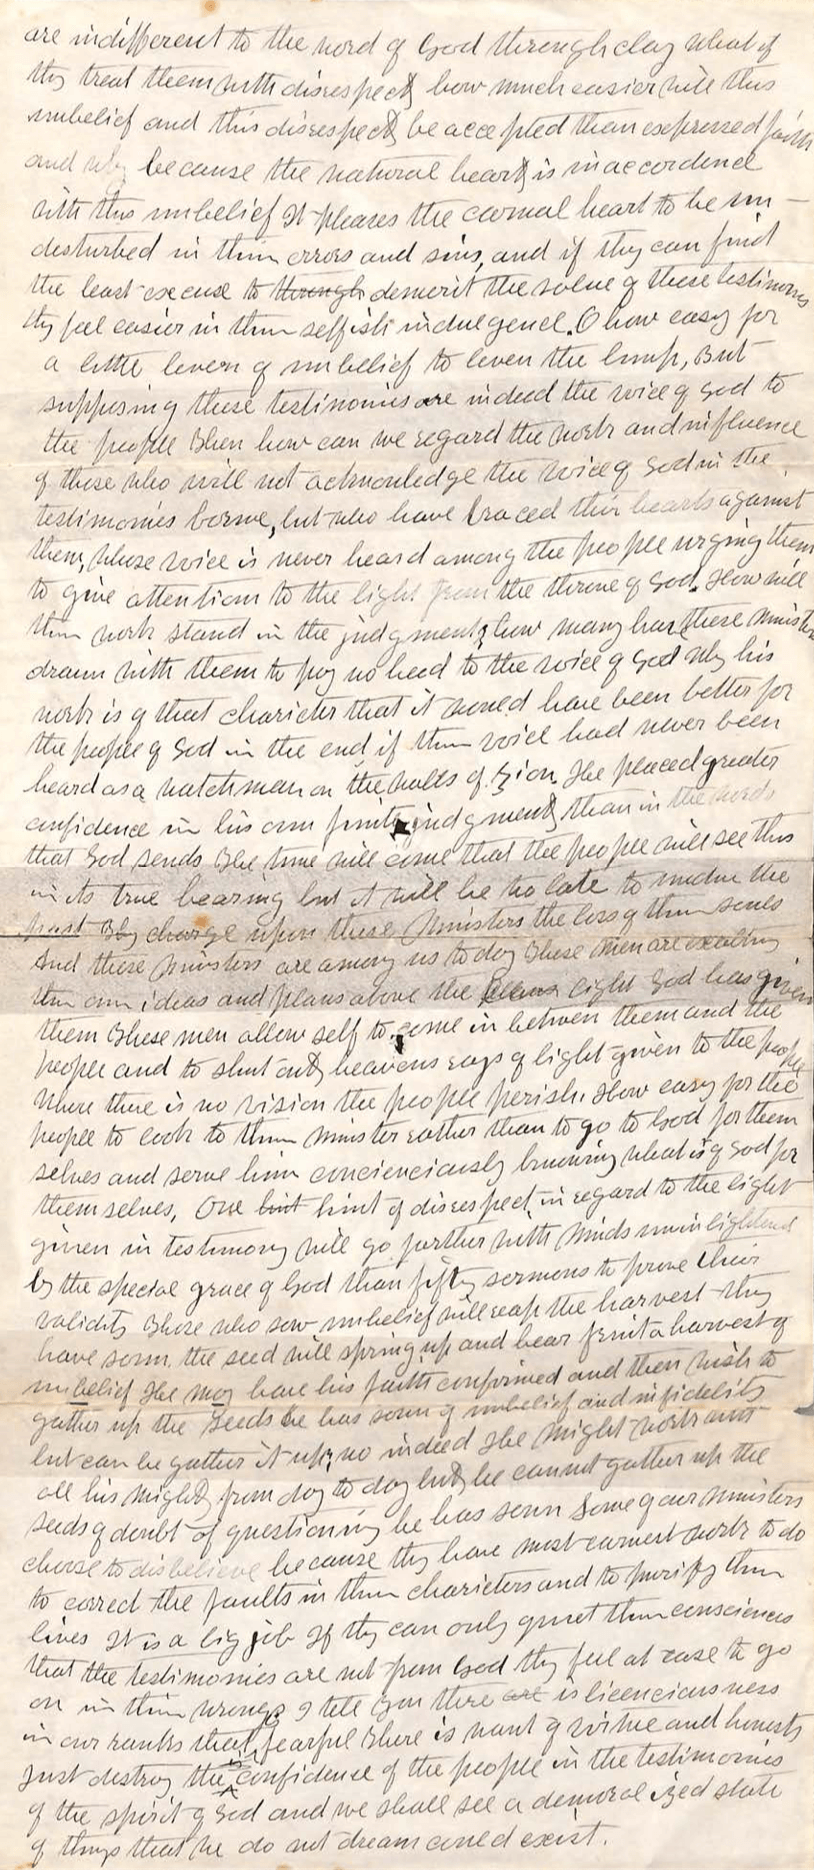 are indifferent to the word of God through clay what if
they treat them with disrespect, how much easier will this
unbelief and this disrespect, be accepted than expressed faith
and why because the natural heart, is in accordence
with this unbelief It pleases the carnal heart to be un-
disturbed in their errors and sins, and if they can find
the least excuse to through demerit the value of these testimonies
they feel easier in their selfish indulgence. O how easy for
a little leven of unbelief to leven the lump, But
supposing these testimonies are indeed the voice of God to
the people Then how can we regard the work and influence
of those who will not acknowledge the voice of God in the
testimonies borne, but who have braced their hearts against
them, whose voice is never heard among the people urging them
to give attention to the light from the throne of God. How will
their work stand in the judgment, how many have these ministers
drawn with them to pay no heed to the voice of God why his
work is of that charicter that it would have been better for
the people of God in the end if their voice had never been
heard as a watchman on the walls of Zion. He placed greater
confidence in his own finite judgment, than in the words
that God sends The time will come that the people will see this
in its true bearing but it will be too late to undue the
past They charge upon these Ministers the loss of their souls
And these Ministers are among us today These men are exalting
their own ideas and plans above the light God has given
them These men allow self to come in between them and the
people and to shut out, heavens rays of light given to the people
Where there is no vision the people perish. How easy for the
people to look to their minister rather than to go to God for them
selves and serve him concienciously knowing what is of God for
themselves, One hint hint of disrespect, in regard to the light
given in testimony will go farther with minds uninlightened
by the special grace of God than fifty sermons to prove their
validity Those who sow unbelief will reap the harvest they
have sown. the seed will spring up and bear fruit a harvest of
unbelief He may have his faith confirmed and then wish to
gather up the seeds he has sown of unbelief and infidelity
but can he gather it up; no indeed He might work with
all his might, from day to day but, he cannot gather up the
seeds of doubt of questioning he has sown Some of our Ministers
choose to disbelieve because they have most earnest work to do
to correct the faults in their charicters and to purify their
lives It is a big job If they can only quiet their consciences
that the testimonies are not from God they feel at ease to go
on in their wrongs I tell you there are is licenciousness
in our ranks that is fearful There is want of virtue and honesty
Just destroy the confidence of the people in the testimonies
of the spirit of God and we shall see a demoralized state
of things that we do not dream could exist.